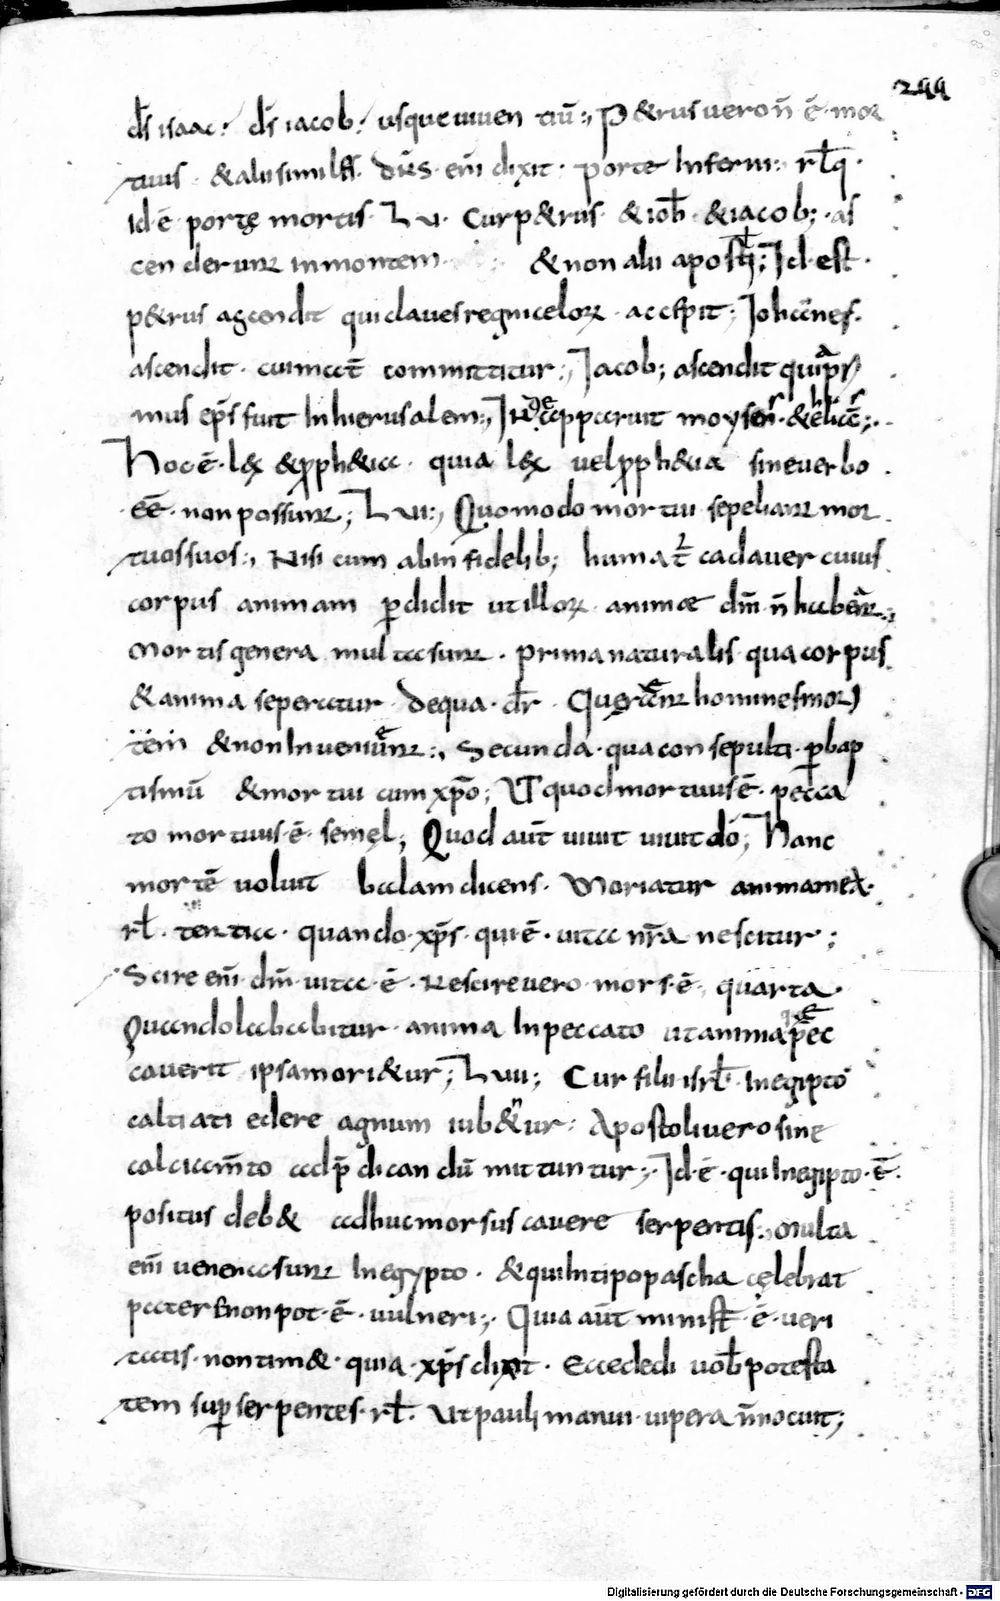 244
dꝭ isaac: dꝭ iacob: usque viuen tiū:, P&rus uero n̄ ē mor
tuus · &alii similit̄. dn̄s · em̄ dixit · porte Inferni: rłq ·
Id·ē· portę mortis · L vi· Cur p&rus · &ioħ · &iacob; · as
cen derunt in montem &non alii apostłi; Id·est ·
p&rus ascendit qui claues regni celorꝝ · accepit; Iohannes ·
ascendit · cui mat̄ committitur:, Iacob; ascendit qui pri
mus ep̄s fuit In hierusalem:, De apparuit moysen · &heliā;·
Hoc ē · lex &pph&ia · quia lex uel pph&ia sine uerbo
·eē· non possunt; L vii:, Quomodo mortui sepeliant mor
tuos suos:, Nisi cum ab infidelib; humat̄ cadauer cuius
corpus animam ꝑdidit ut illorꝝ · animæ dm̄ n̄ habent:,
Mortis genera multa sunt · prima naturalis qua corpus
&anima seperatur de qua · dr̄ · Querent homines mor
tem &non Inuenient:, Secunda · qua consepulti · ꝑ bap
tismū &mortui cum xp̄o; Ut quod mortuus ē · pecca
to mortuus·ē· semel; Quod aūt uiuit uiuit dō; Hanc
mortē uoluit balam dicens · Moriatur anima mea ·
rł. tertia · quando xp̄s · qui ē · uita nr̄a nescitur;
Scire em̄ dm̄ uita · ē · Nescire uero · mors·ē· quarta ·
Quando labitur · anima In peccato ut anima que pec
cauerit ipsa mori&ur; L viii; Cur filii isrł · In egipto
caltiati edere agnum iub&ur: Apostoli uero sine
calciam̄to ad p̄dicandū mittuntur:· Id·ē· qui In egipto · ē·
positus deb& adhuc morsus cauere serpentis:, Multa
em̄ uenena sunt In egypto · &qui In tipo pascha celebrat
pater& non pot·ē· uulneri:, Quia aūt minist̄ · ē · ueri
tatis · non tim& · quia · xp̄s dixit · Ecce dedi uob̄ potesta
tem suꝑ serpentes · rł. Ut pauli manui · uipera n̄ nocuit;
Digitalisierung gefördert durch die Deutsche Forschungsgemeinschaft - DFG